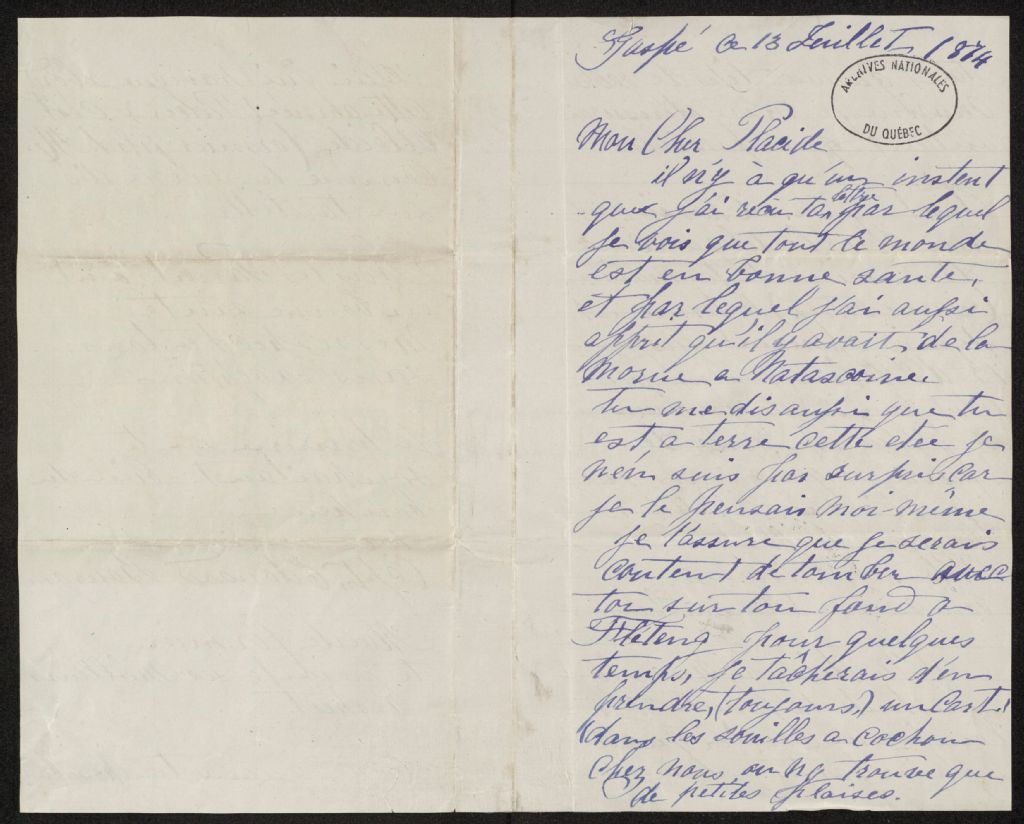 Gaspé ce 13 Juillet, 1874
ARCHIVES NATIONALES
DU QUÉBEC
Mon Cher Placide
il n'y à qu'un instent
que j'ai recu ta lettre par lequel
je vois que tout le monde
est en bonne sante,
et par lequel j'ai aussi
appret qu'il y avait de la
Morue a
tu me dis aussi que tu
est a terre cette etée je
n'en suis pas surpris car
je le pensais moi-même
je t'assure que je serais
content de tomber avec
toi sur ton fond a
pour quelques
temps, je tâcherais d'en
prendre, (toujours,) un cart.
(dans les souilles a cochon
Chez nous on ny trouve que
de petites plaises.